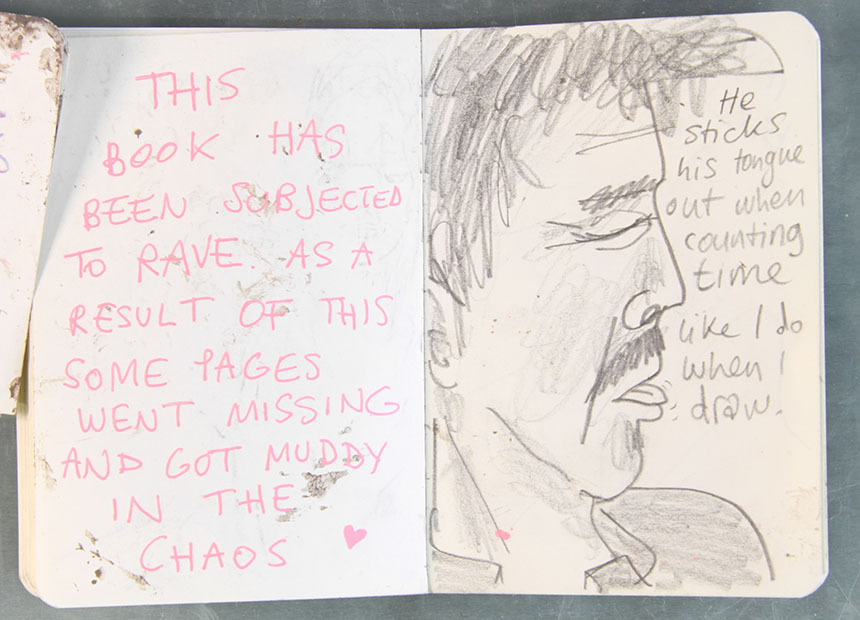 THIS
BOOK HAS
BEEN SUBJECTED
TO RAVE. AS A
RESULT OF THIS
SOME PAGES
WENT MISSING
AND GOT MUDDY
IN THE
CHAOS
He
sticks
his tongue
out when
counting
time
like I do
when I
draw.